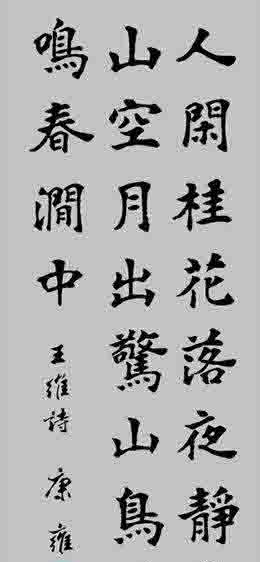 人閑桂花落夜靜
山空月出驚山鳥
鳴春澗中
王維詩 康雍